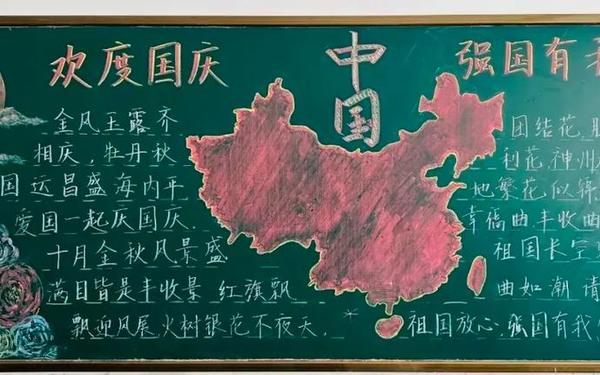 欢度国庆
中国
强国有我
金风玉露齐
相庆,牡丹秋
国运昌盛海内平
爱国一起庆国庆.
十月金秋风景盛
满目皆是丰收景 红旗飘
飘迎风展火树银花不夜天.
团结花,胜
利花,神州
地繁花似锦
幸福曲丰收曲
祖国长空
曲如潮 请
祖国放心,强国有我